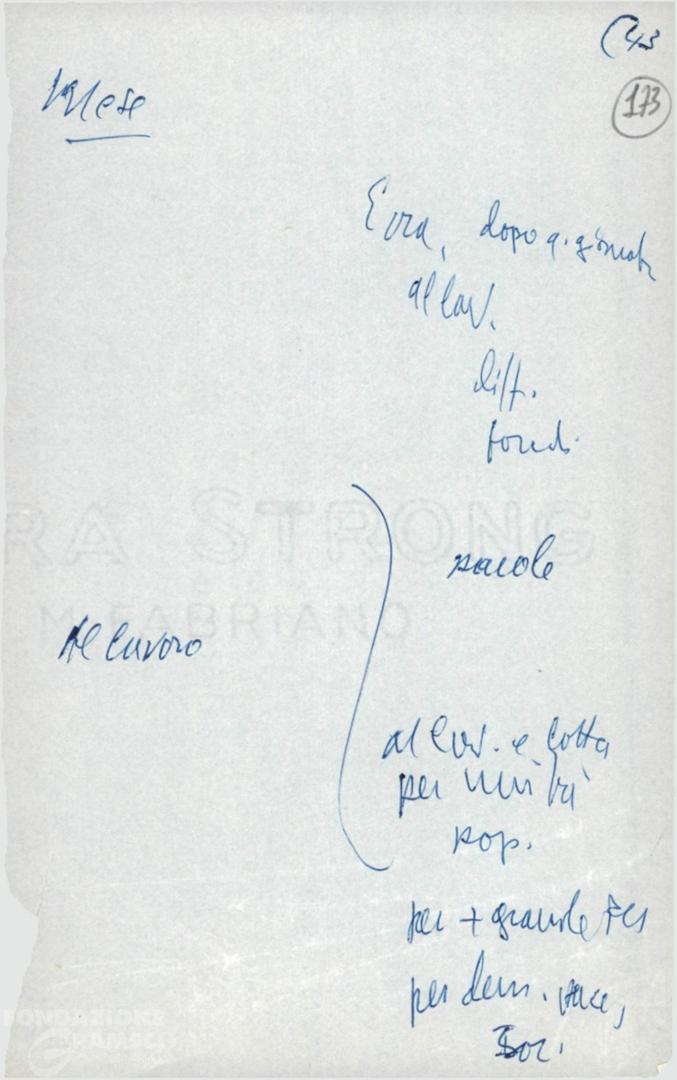 (43
173
Mese
E ora, dopo q. giornate
al lav.
diff.
fondi
parole
RA STRONG
M. FABRIANO
Al lavoro
al lav. e lotta
per unità
pop.
per + grande PCI
per dem. pace,
Soc.
FONDAZIONE
GRAMSCI